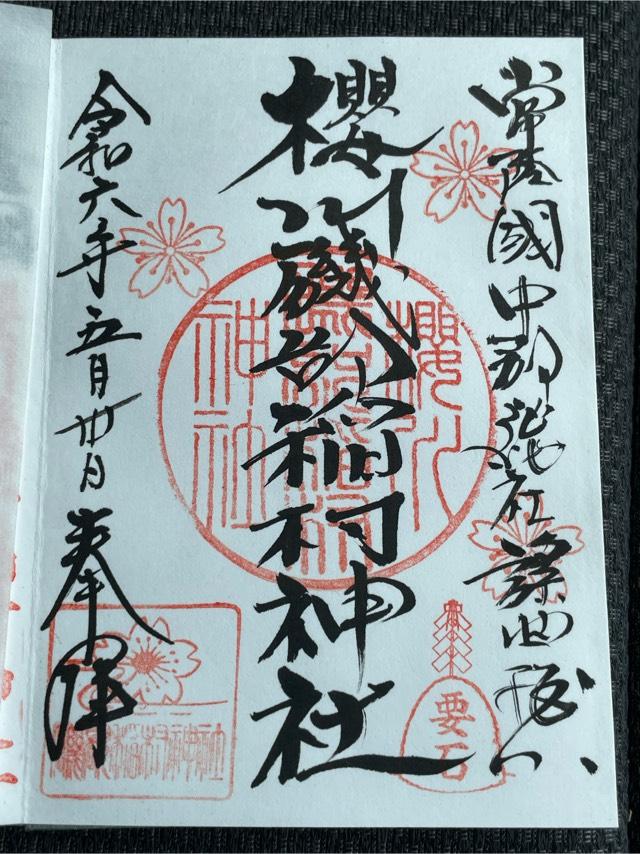 常陸國中郡 社謡曲桜川
櫻川磯部稲村神社
令和六年五月卅日奉拝
櫻川
磯部稲村
神社
要石
磯部稲村神社